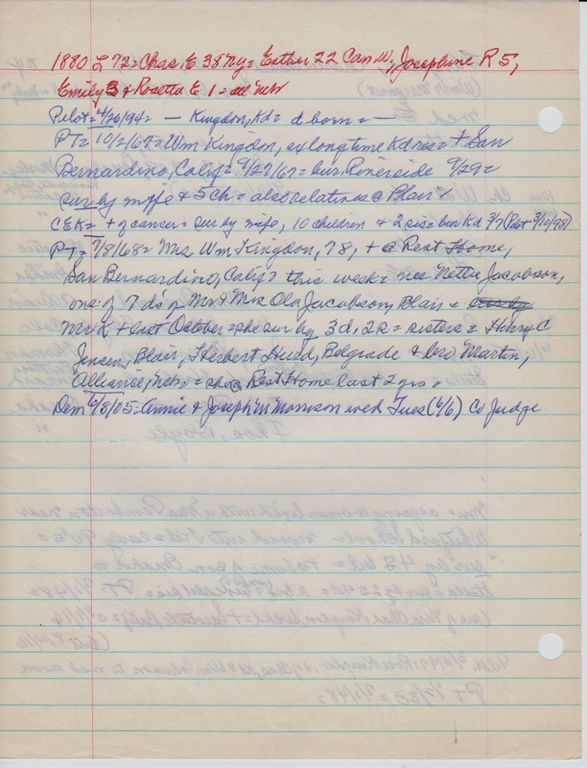 1880 L 72 = Chas. E 38 Ny = Esther 22 Can W, Josephine R 5,
Emily 3 & Rosetta E 1 = all Nebr
Pilot = 4/26/94 = — Kingdon, Kd = d born = —
PT = 10/2/67 = Wm Kingdon, ex longtime Kd res = + San
Bernardino, Calif = 9/27/67 = bur. Riverside 9/29 =
sur by wife & 5 ch = also relatives @ Blair
CEK = + of cancer = sur by wife, 10 children & 2 sis = bur Kd 3/7 (Pilot 3/10/98)
PT = 7/8/68 = Mrs. Wm Kingdon, 78, + @ Rest Home,
San Bernardino, Calif = this week = nee Nettie Jacobson,
one of 7 d's of Mr & Mrs Ola Jacobson, Blair =
Mr K + last October = she sur by 3 d, 2 s = sisters = Henry C
Jensen, Blair, Herbert Hurd, Belgrade & Leo Martin,
Alliance, Neb, = she @ Rest Home last 2 yrs.
Dem 6/8/05 = Annie & Joseph W Morrison wed Tues (6/6) Co Judge